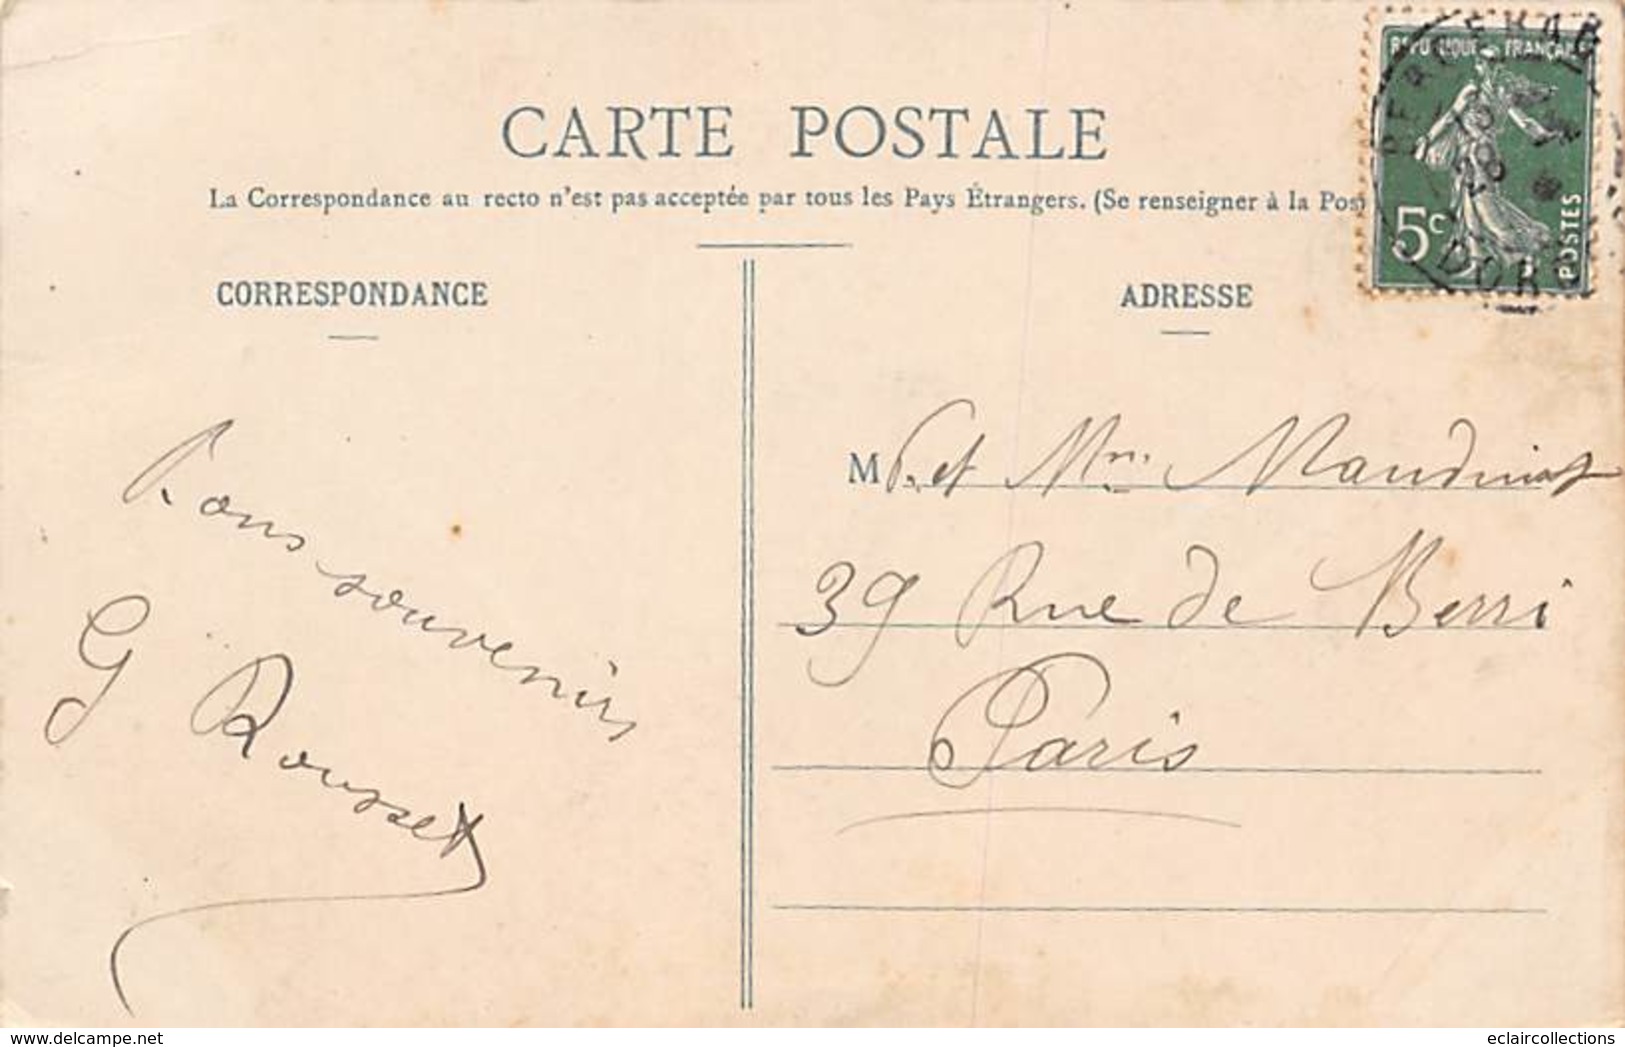 CARTE POSTALE
La Correspondance au recto n'est pas acceptée par tous les Pays Étrangers. (Se renseigner à la Pos
RÉPUBLIQUE FRANÇAISE
5c
POSTES
BERGERAC
28
DORD
CORRESPONDANCE
Bons souvenirs
G Rousset
ADRESSE
M. et Mme
39 Rue de Berri
Paris
delcampe.net
eclaircollections